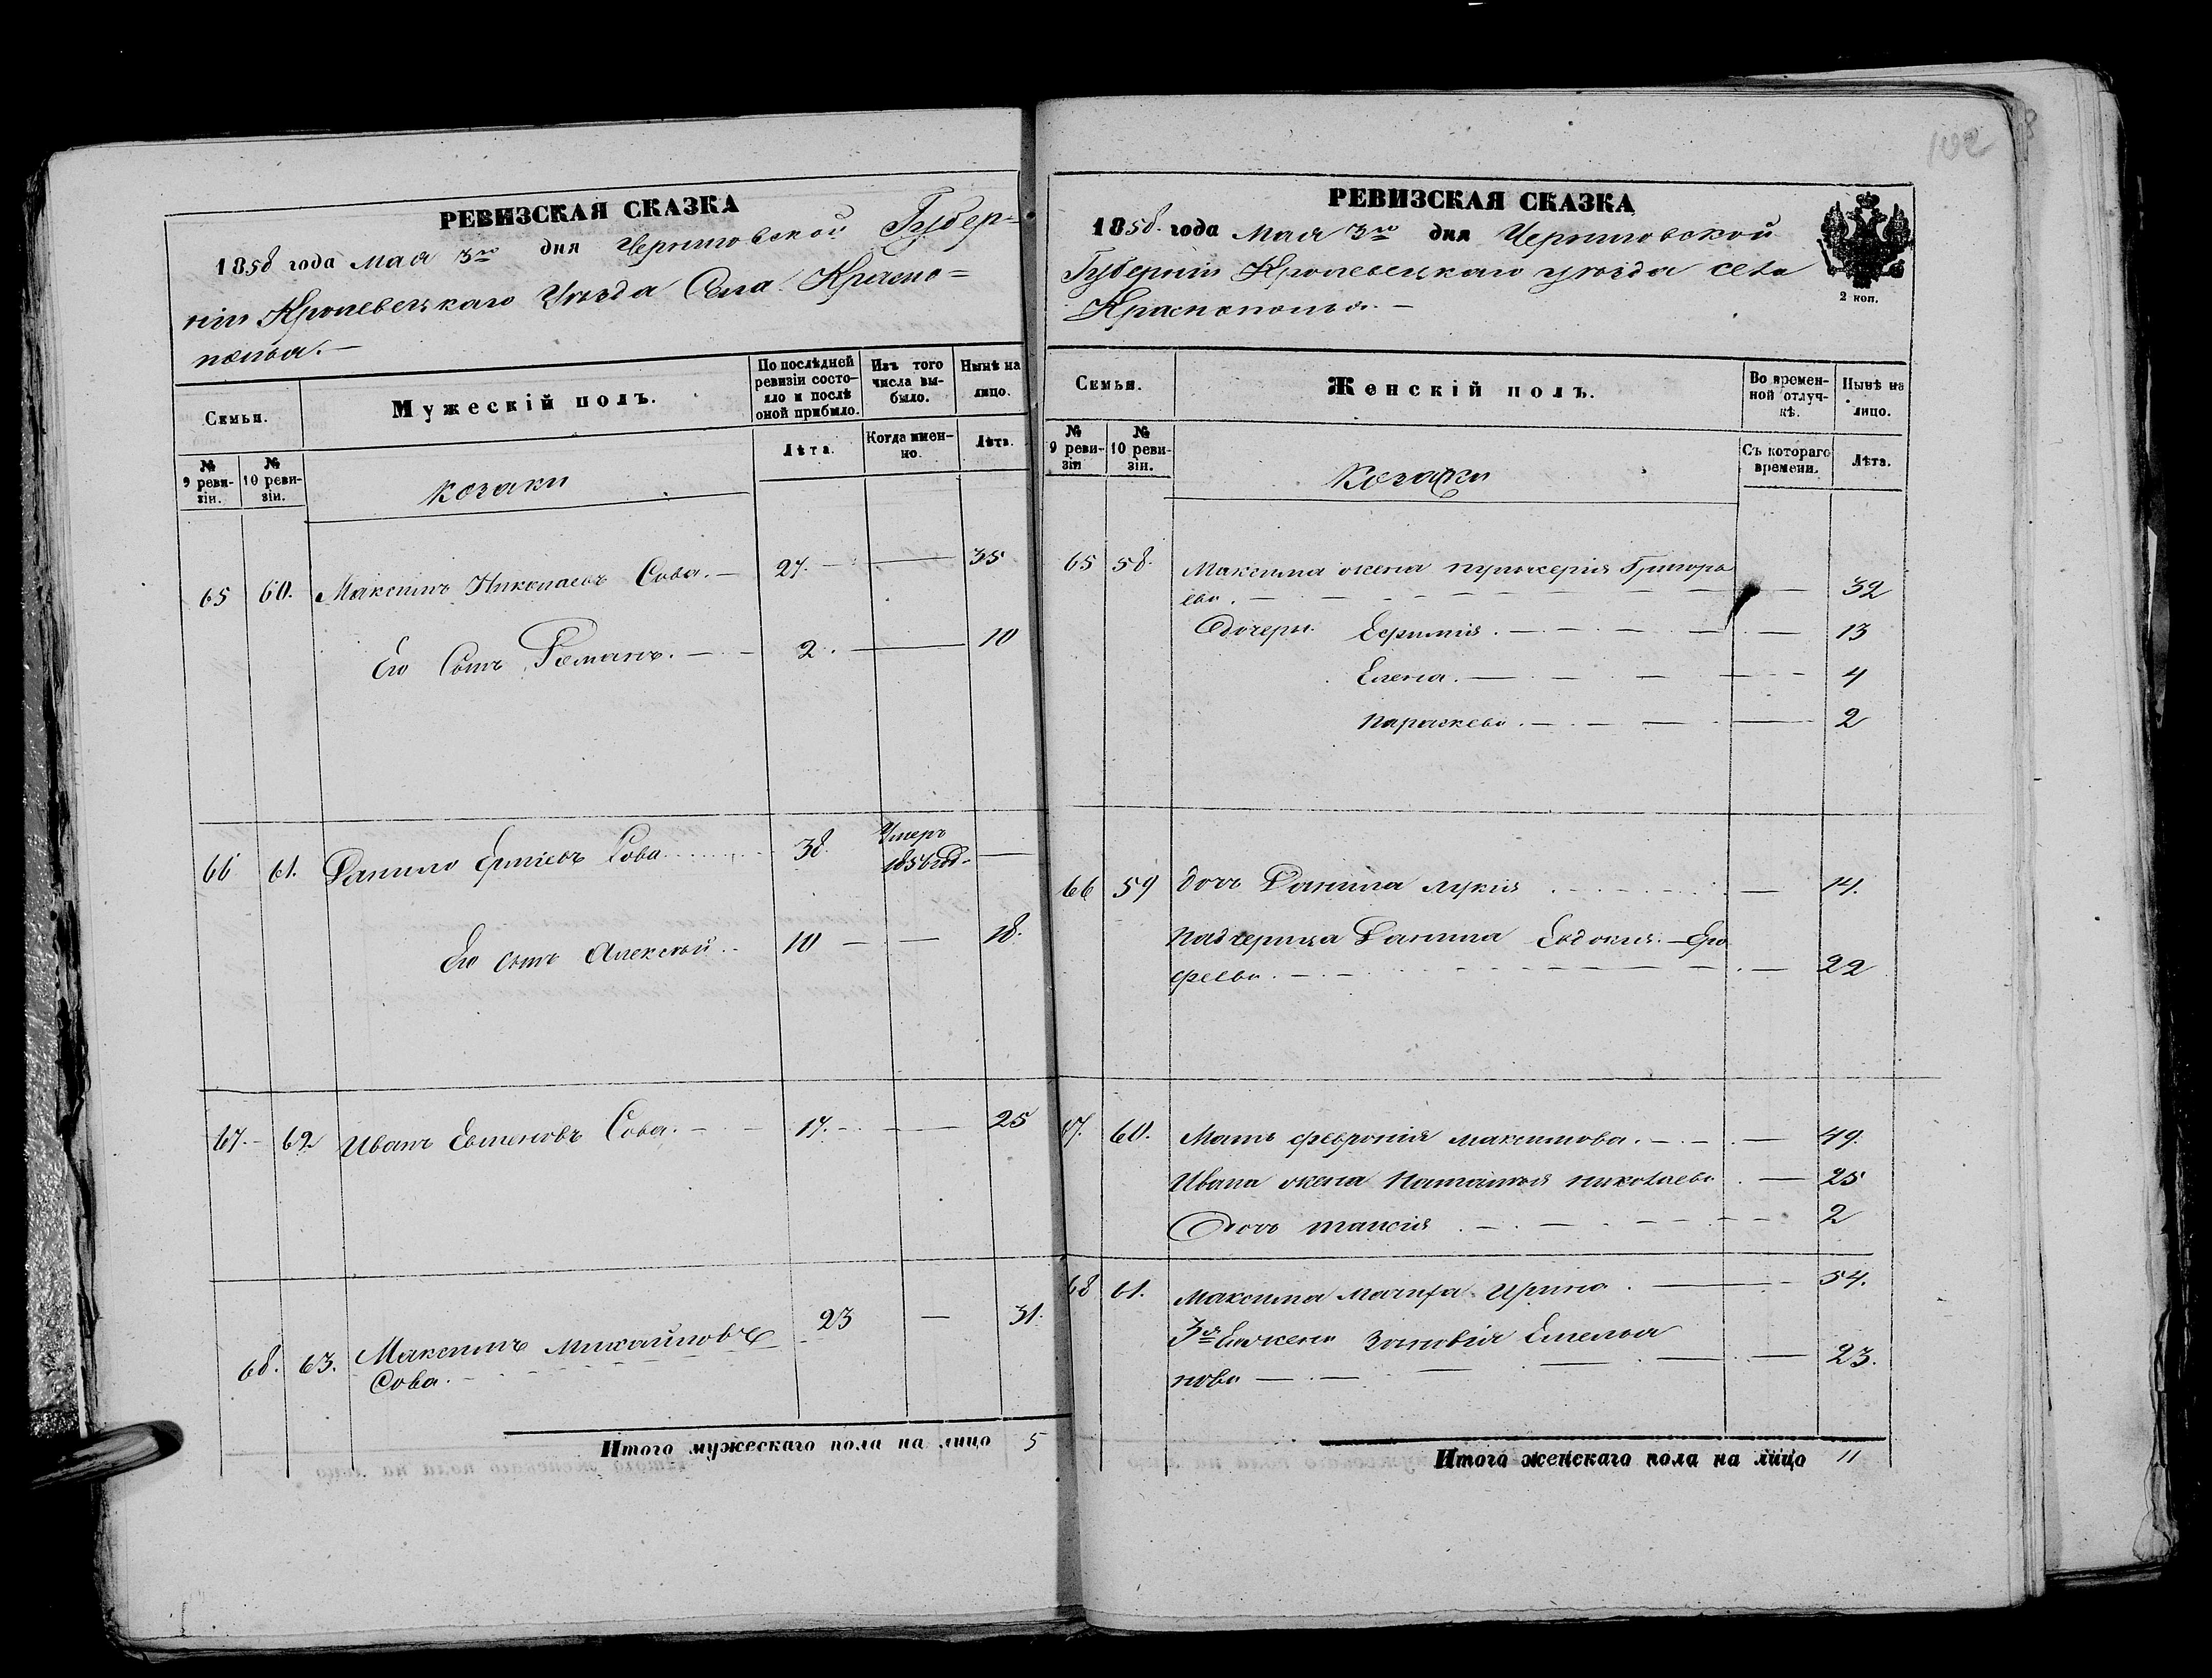 РЕВИЗСКАЯ СКАЗКА
1858 года мая 3го дня Черниговской Губер=
ніи Кролевецкаго Уѣзда Села Красно=
полья.—
Семьи.
Мужескій полъ.
По послѣдней ревизіи состояло и послѣ оной прибыло.
Изъ того числа выбыло.
Нынѣ на лицо.
№ 9 ревизіи.
№ 10 ревизіи.
козаки
Лѣта.
Когда именно.
Лѣта.
65 60. Максимъ Николаевъ Сова.— 27.— — 35
Его Сынъ Романъ.— 2. — 10
66 61. Данило Сова 38. Умеръ — 
1856 год.
Его сынъ Алексѣй. 10 — — 18.
67.— 62 Иванъ Евменовъ Сова.— 17.— — 25
68. 63. Максимъ Михайловъ 23 — 31.
Сова.—
Итого мужескаго пола на лицо 5
102
РЕВИЗСКАЯ СКАЗКА
1858. года Мая 3го дня Черниговской
Губерніи Кролевецкаго уѣзда села
Краснополья.—
2 коп.
Семьи.
Женскій полъ.
Во временной отлучкѣ.
Нынѣ на лицо.
№ 9 ревизіи
№ 10 ревизіи.
Козаки
Съ котораго времени.
Лѣта.
65 58. Максима жена пульхерія Григорь
ева. — 32
дочери Ефимія. — 13
Елена. — 4
Параскева. — 2
66 59 дочь Данила лукія — 14.
Падчерица Данила Евдокія.—Еро
феева. — 22
67. 60. Мать февронія максимова. — 49.
Ивана жена Наталія николаева. — 25
Дочь таисія — 2
68 61. Максима мачиха Ирина. — 54.
3я Его жена Зиновія Емелья
нова — 23.
Итого женскаго пола на лицо 11